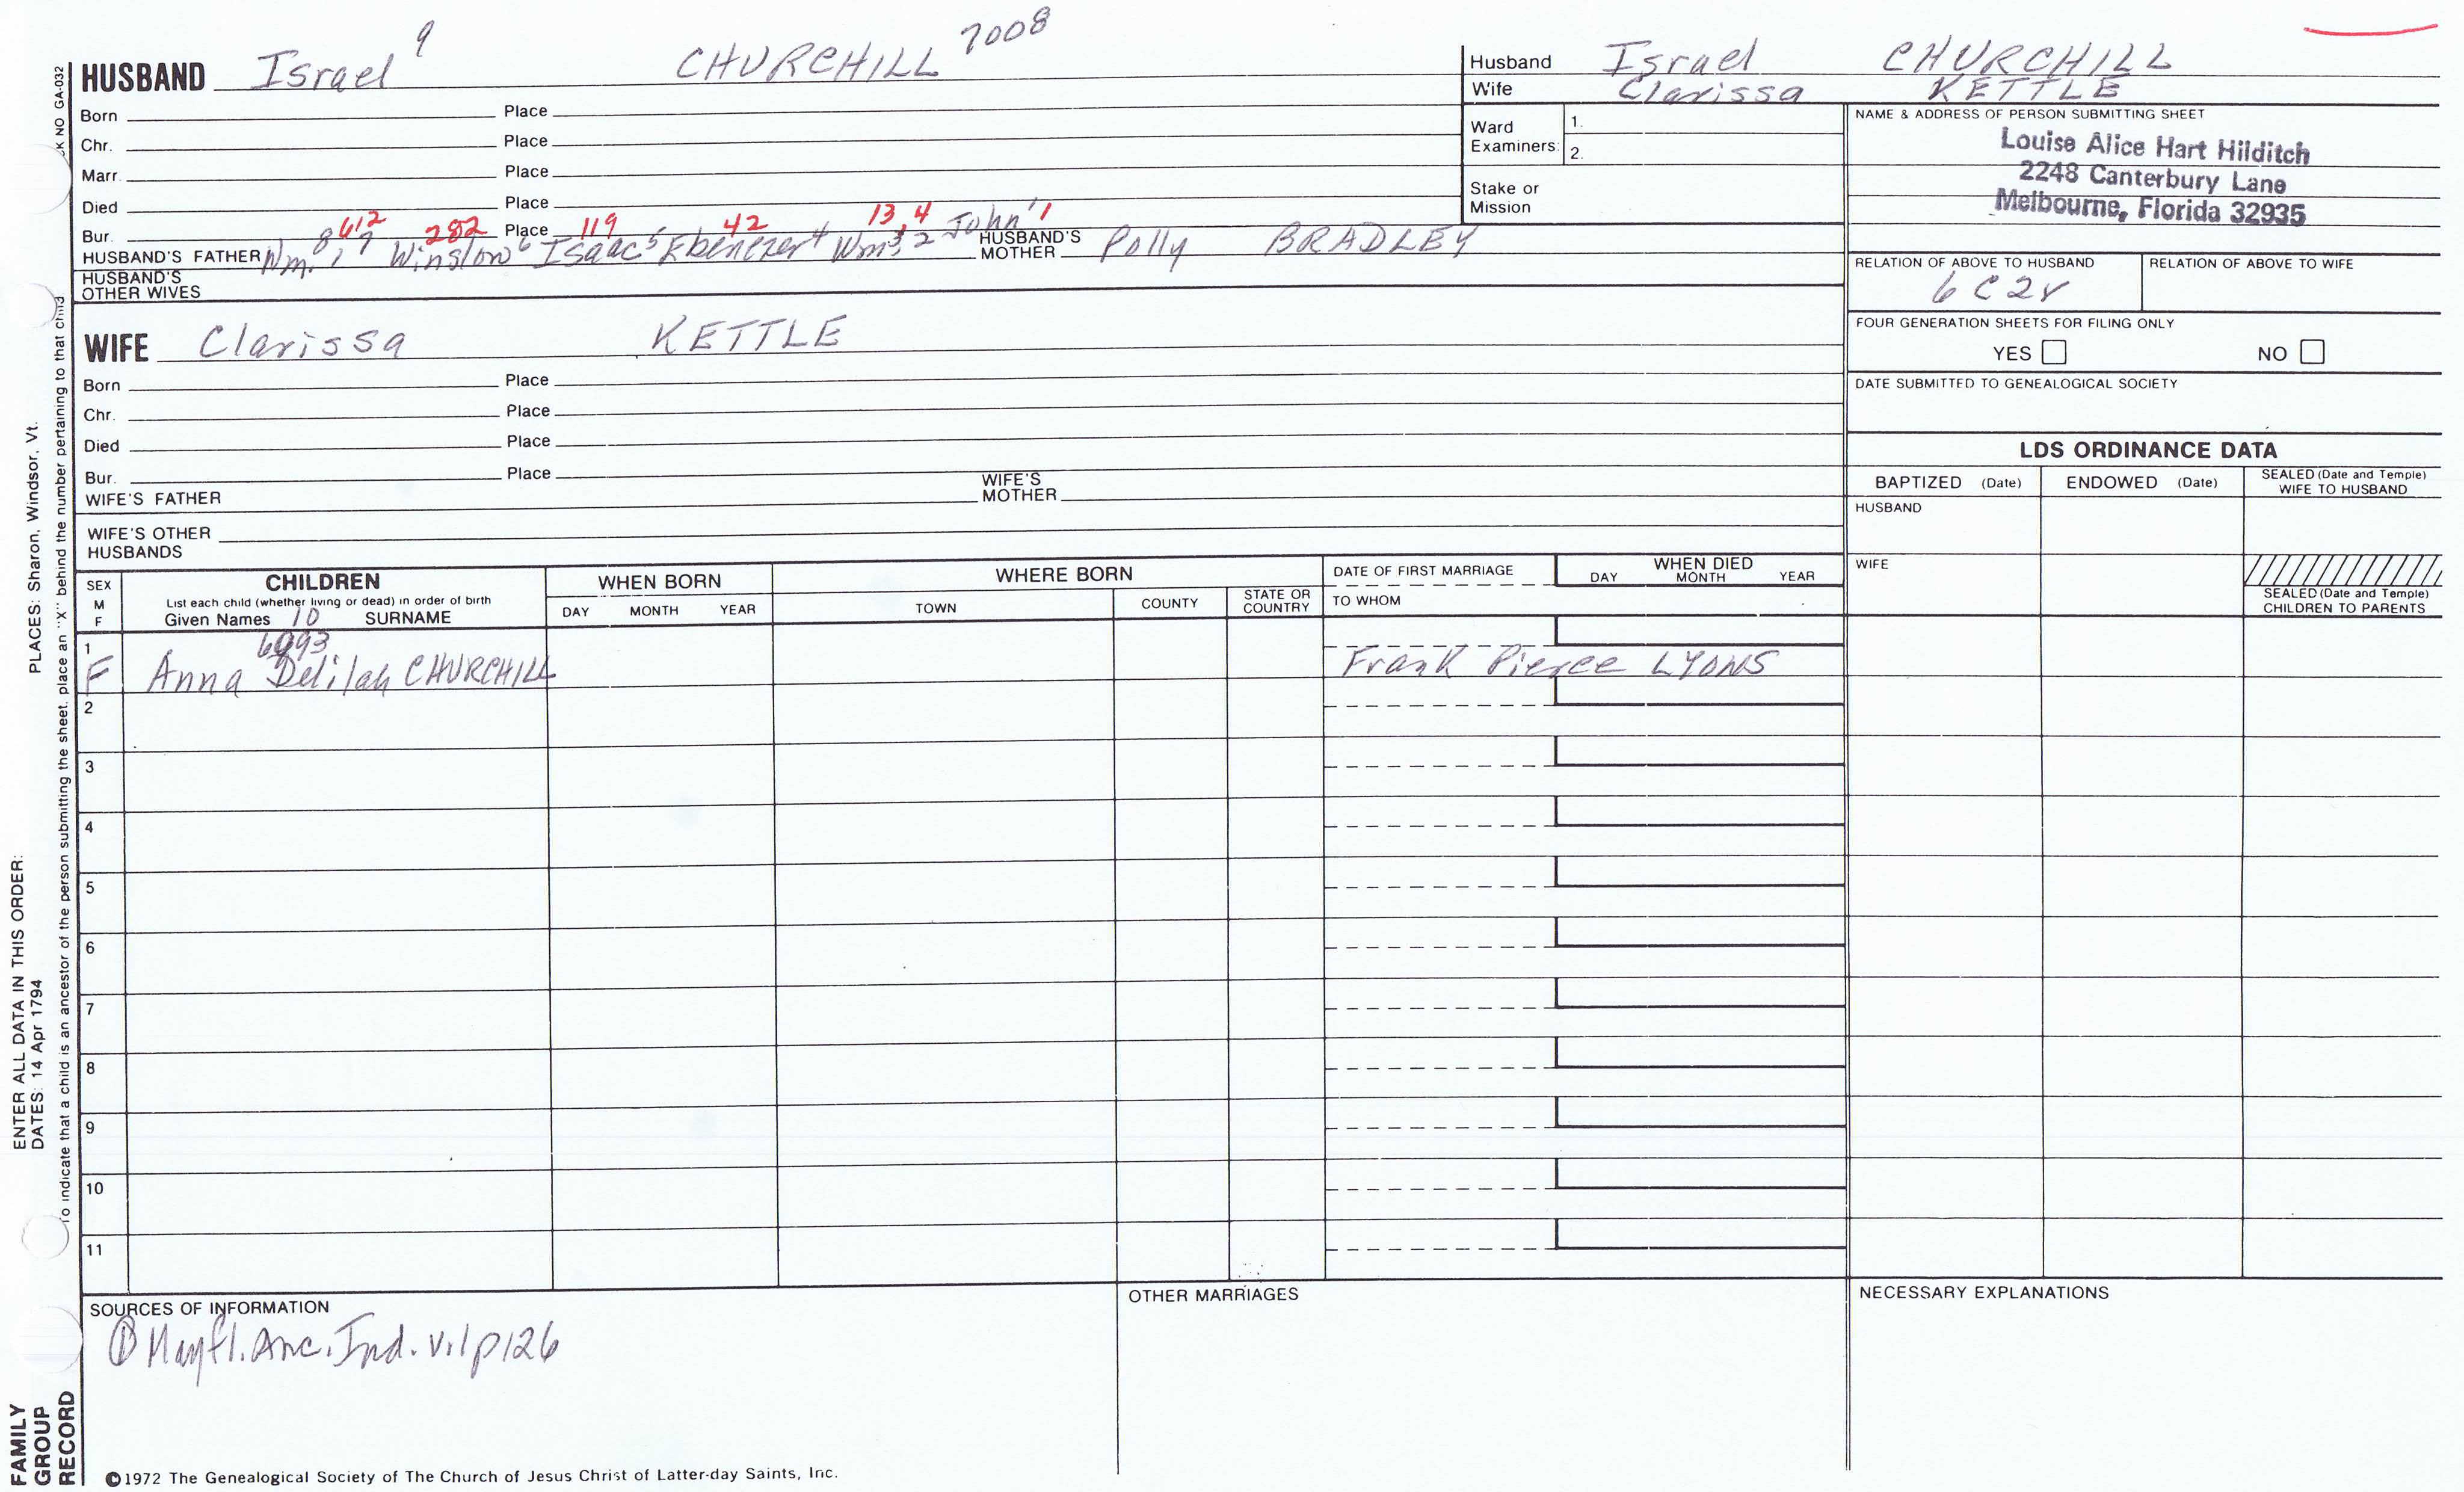 HUSBAND Israel 9 CHURCHILL 7008
Born Place
Chr. Place
Marr. Place
Died Place
Bur. Place
612 282 119 42 13, 4 1
HUSBAND'S FATHER Wm. 8, 7 Winslow 6 Isaac 5 Ebenezer 4 Wm 3, 2 John 1 HUSBAND'S MOTHER Polly BRADLEY
HUSBAND'S OTHER WIVES
WIFE Clarissa KETTLE
Born Place
Chr. Place
Died Place
Bur. Place
WIFE'S FATHER WIFE'S MOTHER
WIFE'S OTHER HUSBANDS
Husband Israel CHURCHILL
Wife Clarissa KETTLE
Ward Examiners: 1.
2.
Stake or Mission
NAME & ADDRESS OF PERSON SUBMITTING SHEET
Louise Alice Hart Hilditch
2248 Canterbury Lane
Melbourne, Florida 32935
RELATION OF ABOVE TO HUSBAND RELATION OF ABOVE TO WIFE
6 C 2 r
FOUR GENERATION SHEETS FOR FILING ONLY
YES NO
DATE SUBMITTED TO GENEALOGICAL SOCIETY
LDS ORDINANCE DATA
BAPTIZED (Date) ENDOWED (Date) SEALED (Date and Temple) WIFE TO HUSBAND
HUSBAND
WIFE
SEALED (Date and Temple) CHILDREN TO PARENTS
SEX M F
CHILDREN
List each child (whether living or dead) in order of birth
Given Names 10 SURNAME
WHEN BORN
DAY MONTH YEAR
WHERE BORN
TOWN COUNTY STATE OR COUNTRY
DATE OF FIRST MARRIAGE
TO WHOM
WHEN DIED
DAY MONTH YEAR
1
6993
F Anna Delilah CHURCHILL Frank Pierce LYONS
2
3
4
5
6
7
8
9
10
11
SOURCES OF INFORMATION
① Mayfl. Anc. Ind. v.1 p126
OTHER MARRIAGES
NECESSARY EXPLANATIONS
©1972 The Genealogical Society of The Church of Jesus Christ of Latter-day Saints, Inc.
FAMILY GROUP RECORD
ENTER ALL DATA IN THIS ORDER:
DATES: 14 Apr 1794 PLACES: Sharon, Windsor, Vt.
To indicate that a child is an ancestor of the person submitting the sheet, place an "X" behind the number pertaining to that child
NO GA-032